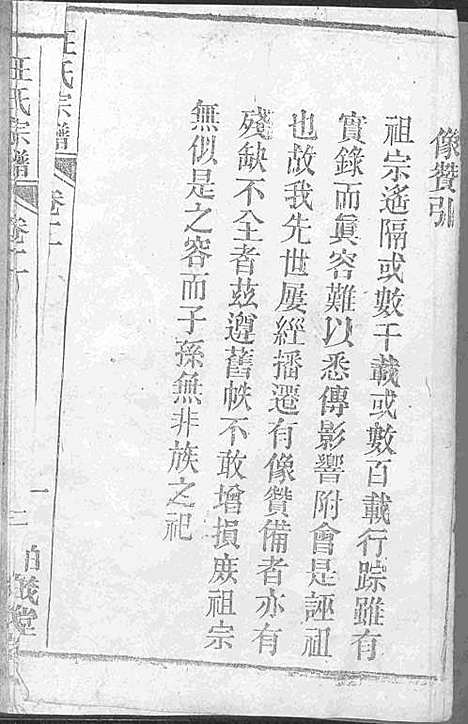 像贊引
祖宗遙隔或數千載或數百載行踪雖有
實錄而眞容難以悉傳影響附會是誣祖
也故我先世屢經播遷有像贊備者亦有
殘缺不全者茲遵舊帙不敢增損庶祖宗
無似是之容而子孫無非族之祀
王氏宗譜
卷十二
王氏宗譜
卷十二
一
二